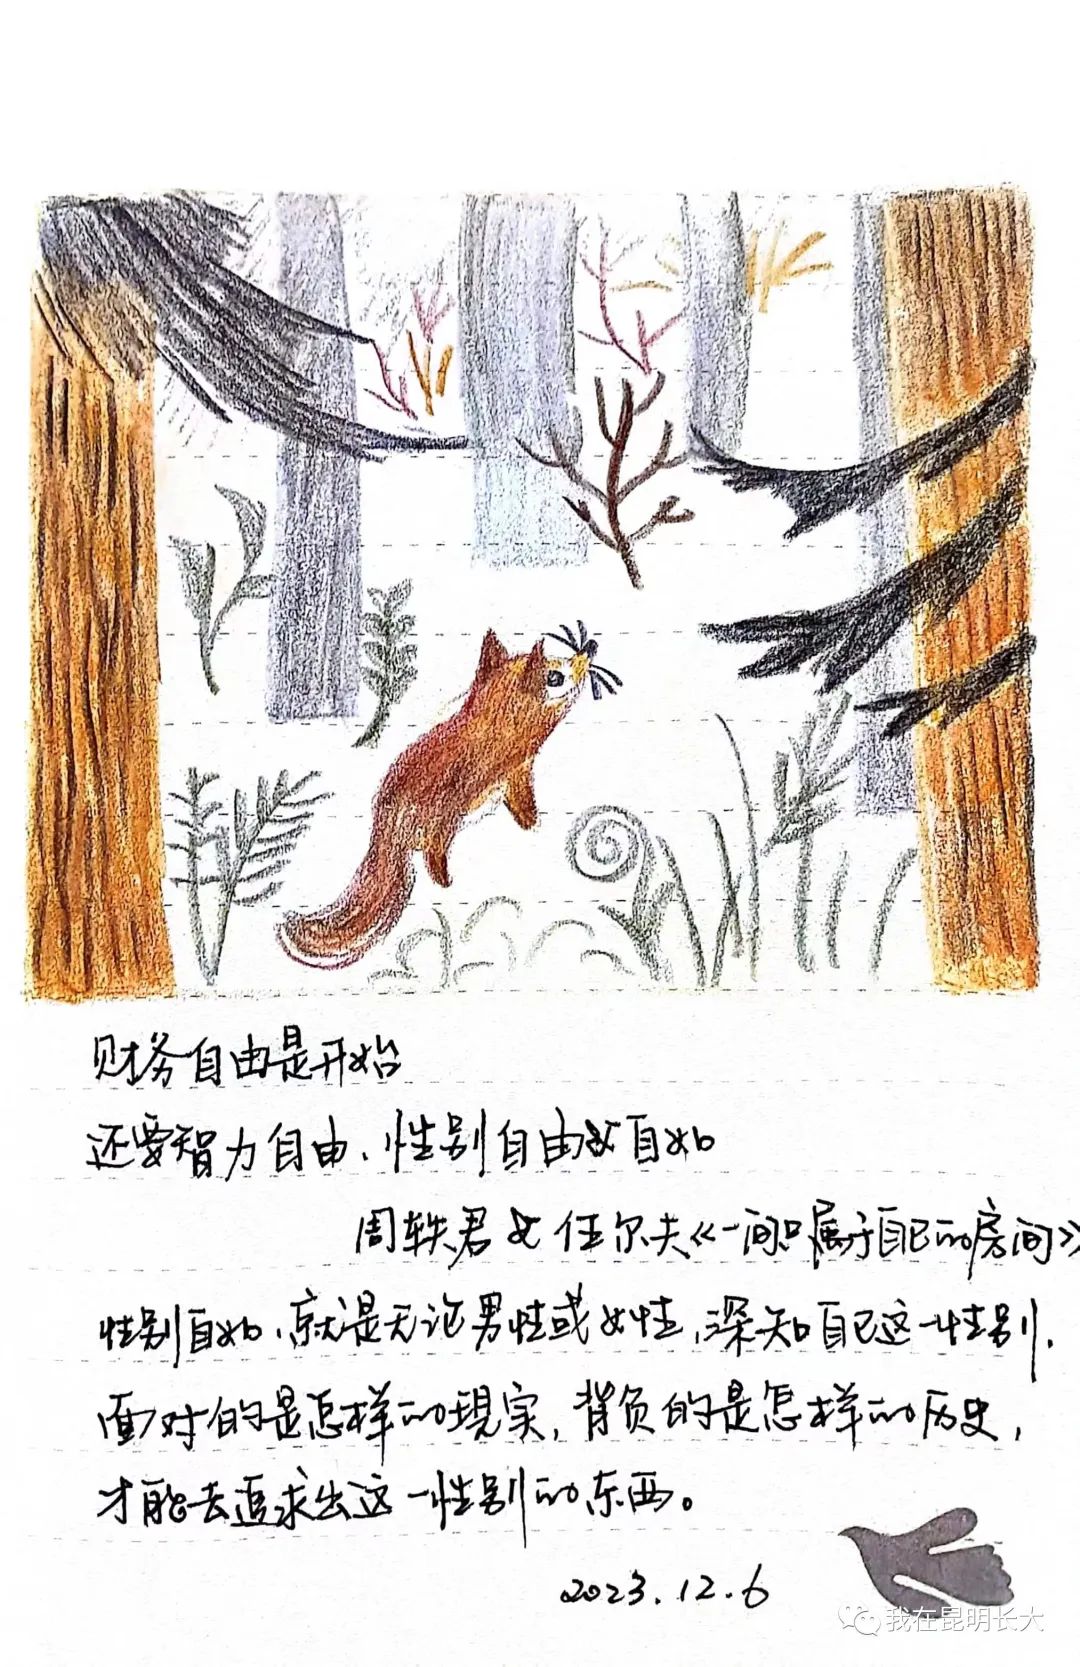 财务自由是开始
还要智力自由、性别自由或自如
周轶君 & 伍尔夫《一间只属于自己的房间》
性别自如,就是无论男性或女性,深知自己这一性别,
面对的是怎样的现实,背负的是怎样的历史,
才能去追求出这一性别的东西。
2023.12.6
我在昆明长大